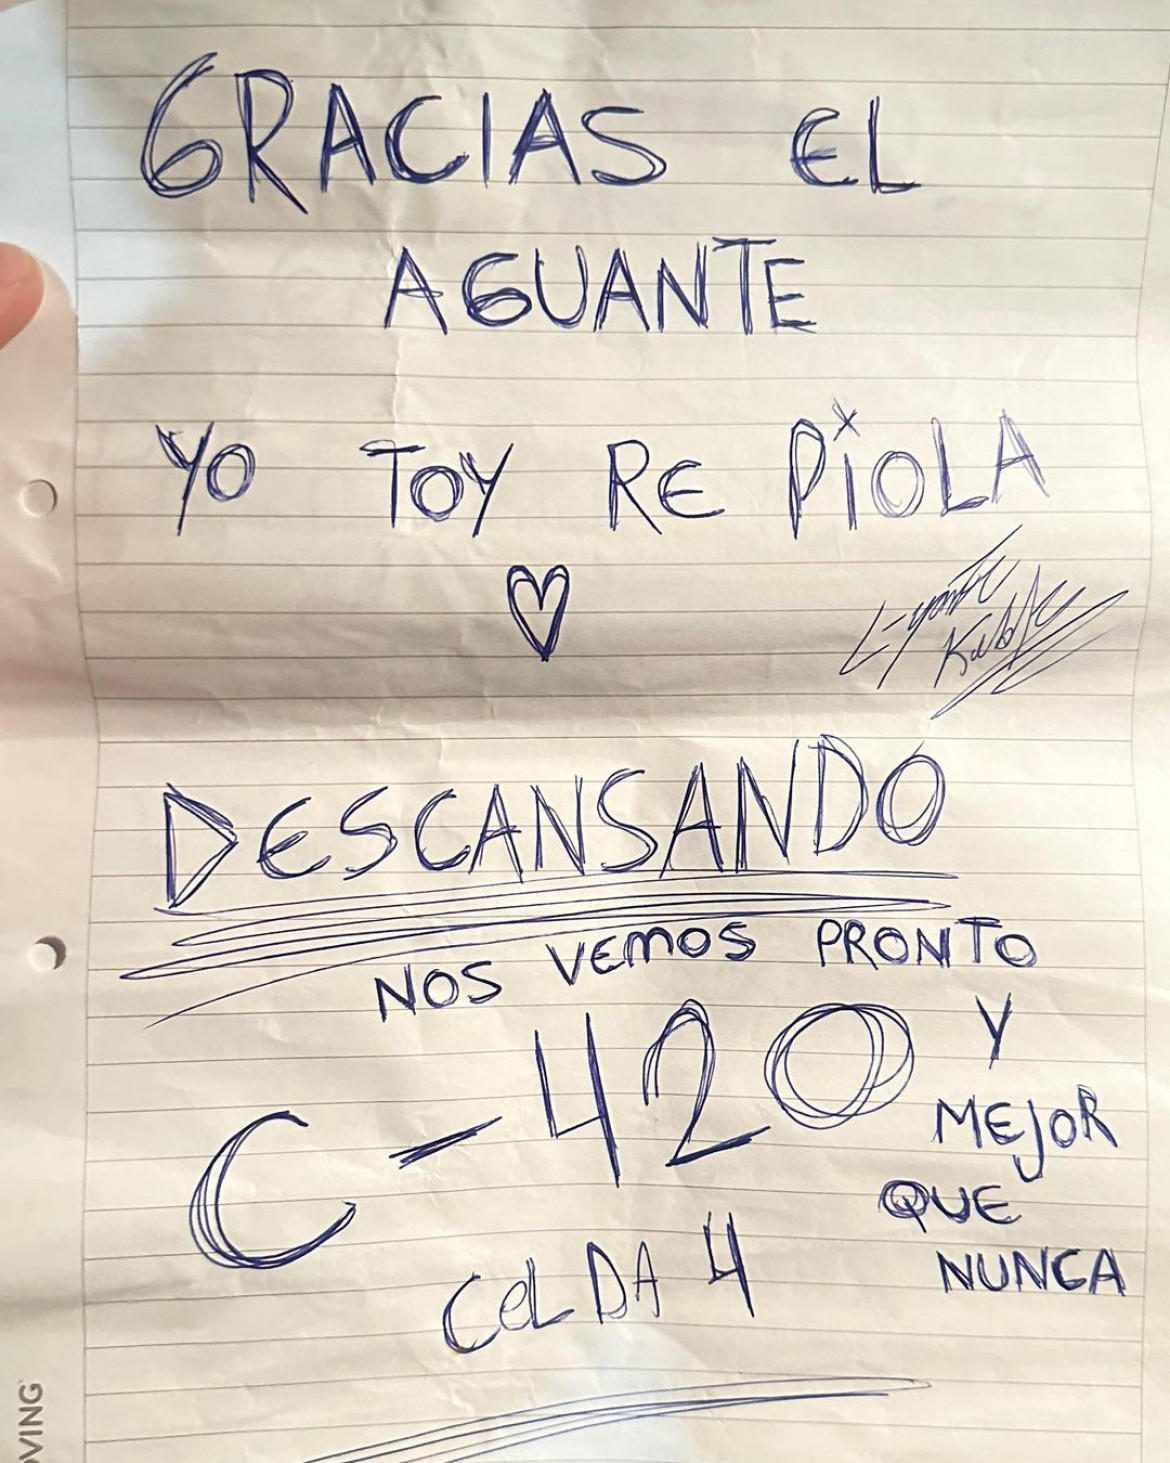 GRACIAS EL
AGUANTE
YO TOY RE PiOLA
L-Gante
DESCANSANDO
NOS VEMOS PRONTO
Y
MEJOR
QUE
NUNCA
C-420
CELDA 4
OVING